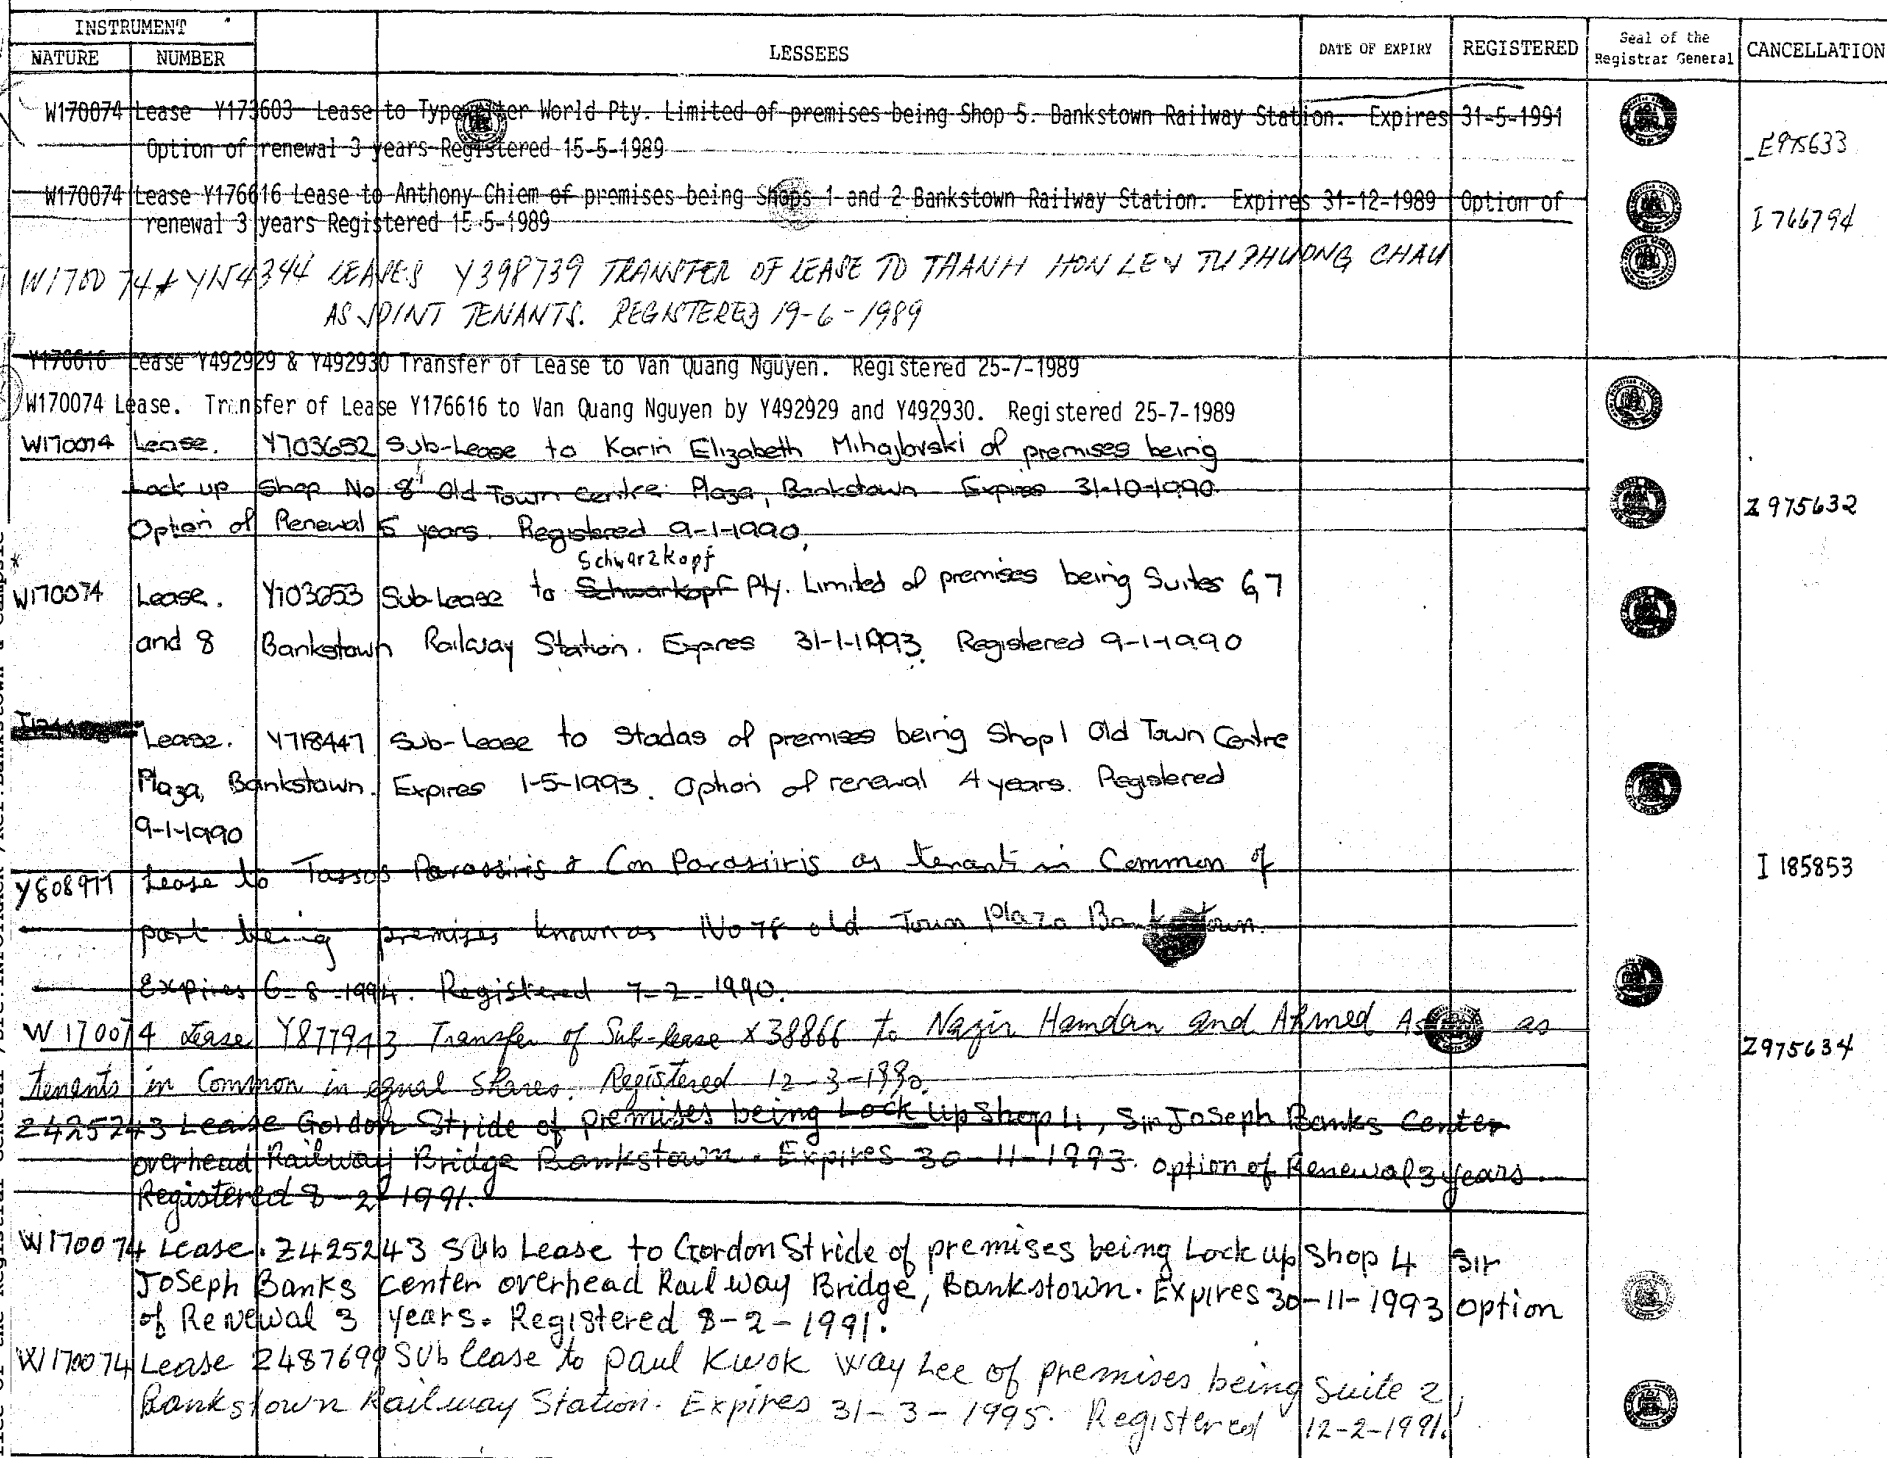 INSTRUMENT
NATURE NUMBER LESSEES DATE OF EXPIRY REGISTERED Seal of the Registrar General CANCELLATION
W170074 Lease Y173603 Lease to Typewriter World Pty. Limited of premises being Shop 5. Bankstown Railway Station. Expires 31-5-1991
Option of renewal 3 years Registered 15-5-1989
E975633
W170074 Lease Y176616 Lease to Anthony Chiem of premises being Shops 1 and 2 Bankstown Railway Station. Expires 31-12-1989 Option of
renewal 3 years Registered 15-5-1989
I 766794
W170074 & Y154344 LEASES Y398739 TRANSFER OF LEASE TO THANH HON LE & TU PHUONG CHAU
AS JOINT TENANTS. REGISTERED 19-6-1989
Y176616 Lease Y492929 & Y492930 Transfer of Lease to Van Quang Nguyen. Registered 25-7-1989
W170074 Lease. Transfer of Lease Y176616 to Van Quang Nguyen by Y492929 and Y492930. Registered 25-7-1989
W170074 Lease. Y703652 Sub-Lease to Karin Elizabeth Mihajlovski of premises being
Lock up Shop No 8 Old Town Centre Plaza, Bankstown Expires 31-10-1990.
Option of Renewal 5 years. Registered 9-1-1990.
Z975632
Schwarzkopf
W170074 Lease. Y703653 Sub-Lease to Schwarkopf Pty. Limited of premises being Suites 6,7
and 8 Bankstown Railway Station. Expires 31-1-1993. Registered 9-1-1990
Lease. Y718447 Sub-Lease to Stadas of premises being Shop 1 Old Town Centre
Plaza, Bankstown. Expires 1-5-1993. Option of renewal 4 years. Registered
9-1-1990
Y808977 Lease to Tassos Parassiris & Con Parassiris as tenants in Common of
I 185853
part being premises known as No 78 old Town Plaza Bankstown.
Expires 6-8-1994. Registered 7-2-1990.
W170074 Lease Y877943 Transfer of Sub-lease X38866 to Nazir Hamdan and Ahmed as
Z975634
tenants in Common in equal Shares. Registered 12-3-1990.
Z425243 Lease Gordon Stride of premises being Lock Up Shop 4, Sir Joseph Banks Center
overhead Railway Bridge Bankstown. Expires 30-11-1993. option of Renewal 3 years.
Registered 8-2-1991.
W170074 Lease. Z425243 Sub Lease to Gordon Stride of premises being Lock up Shop 4 Sir
Joseph Banks Center overhead Railway Bridge, Bankstown. Expires 30-11-1993 option
of Renewal 3 years. Registered 8-2-1991.
W170074 Lease Z487699 Sub lease to Paul Kwok Way Lee of premises being Suite 2,
Bankstown Railway Station. Expires 31-3-1995. Registered 12-2-1991.